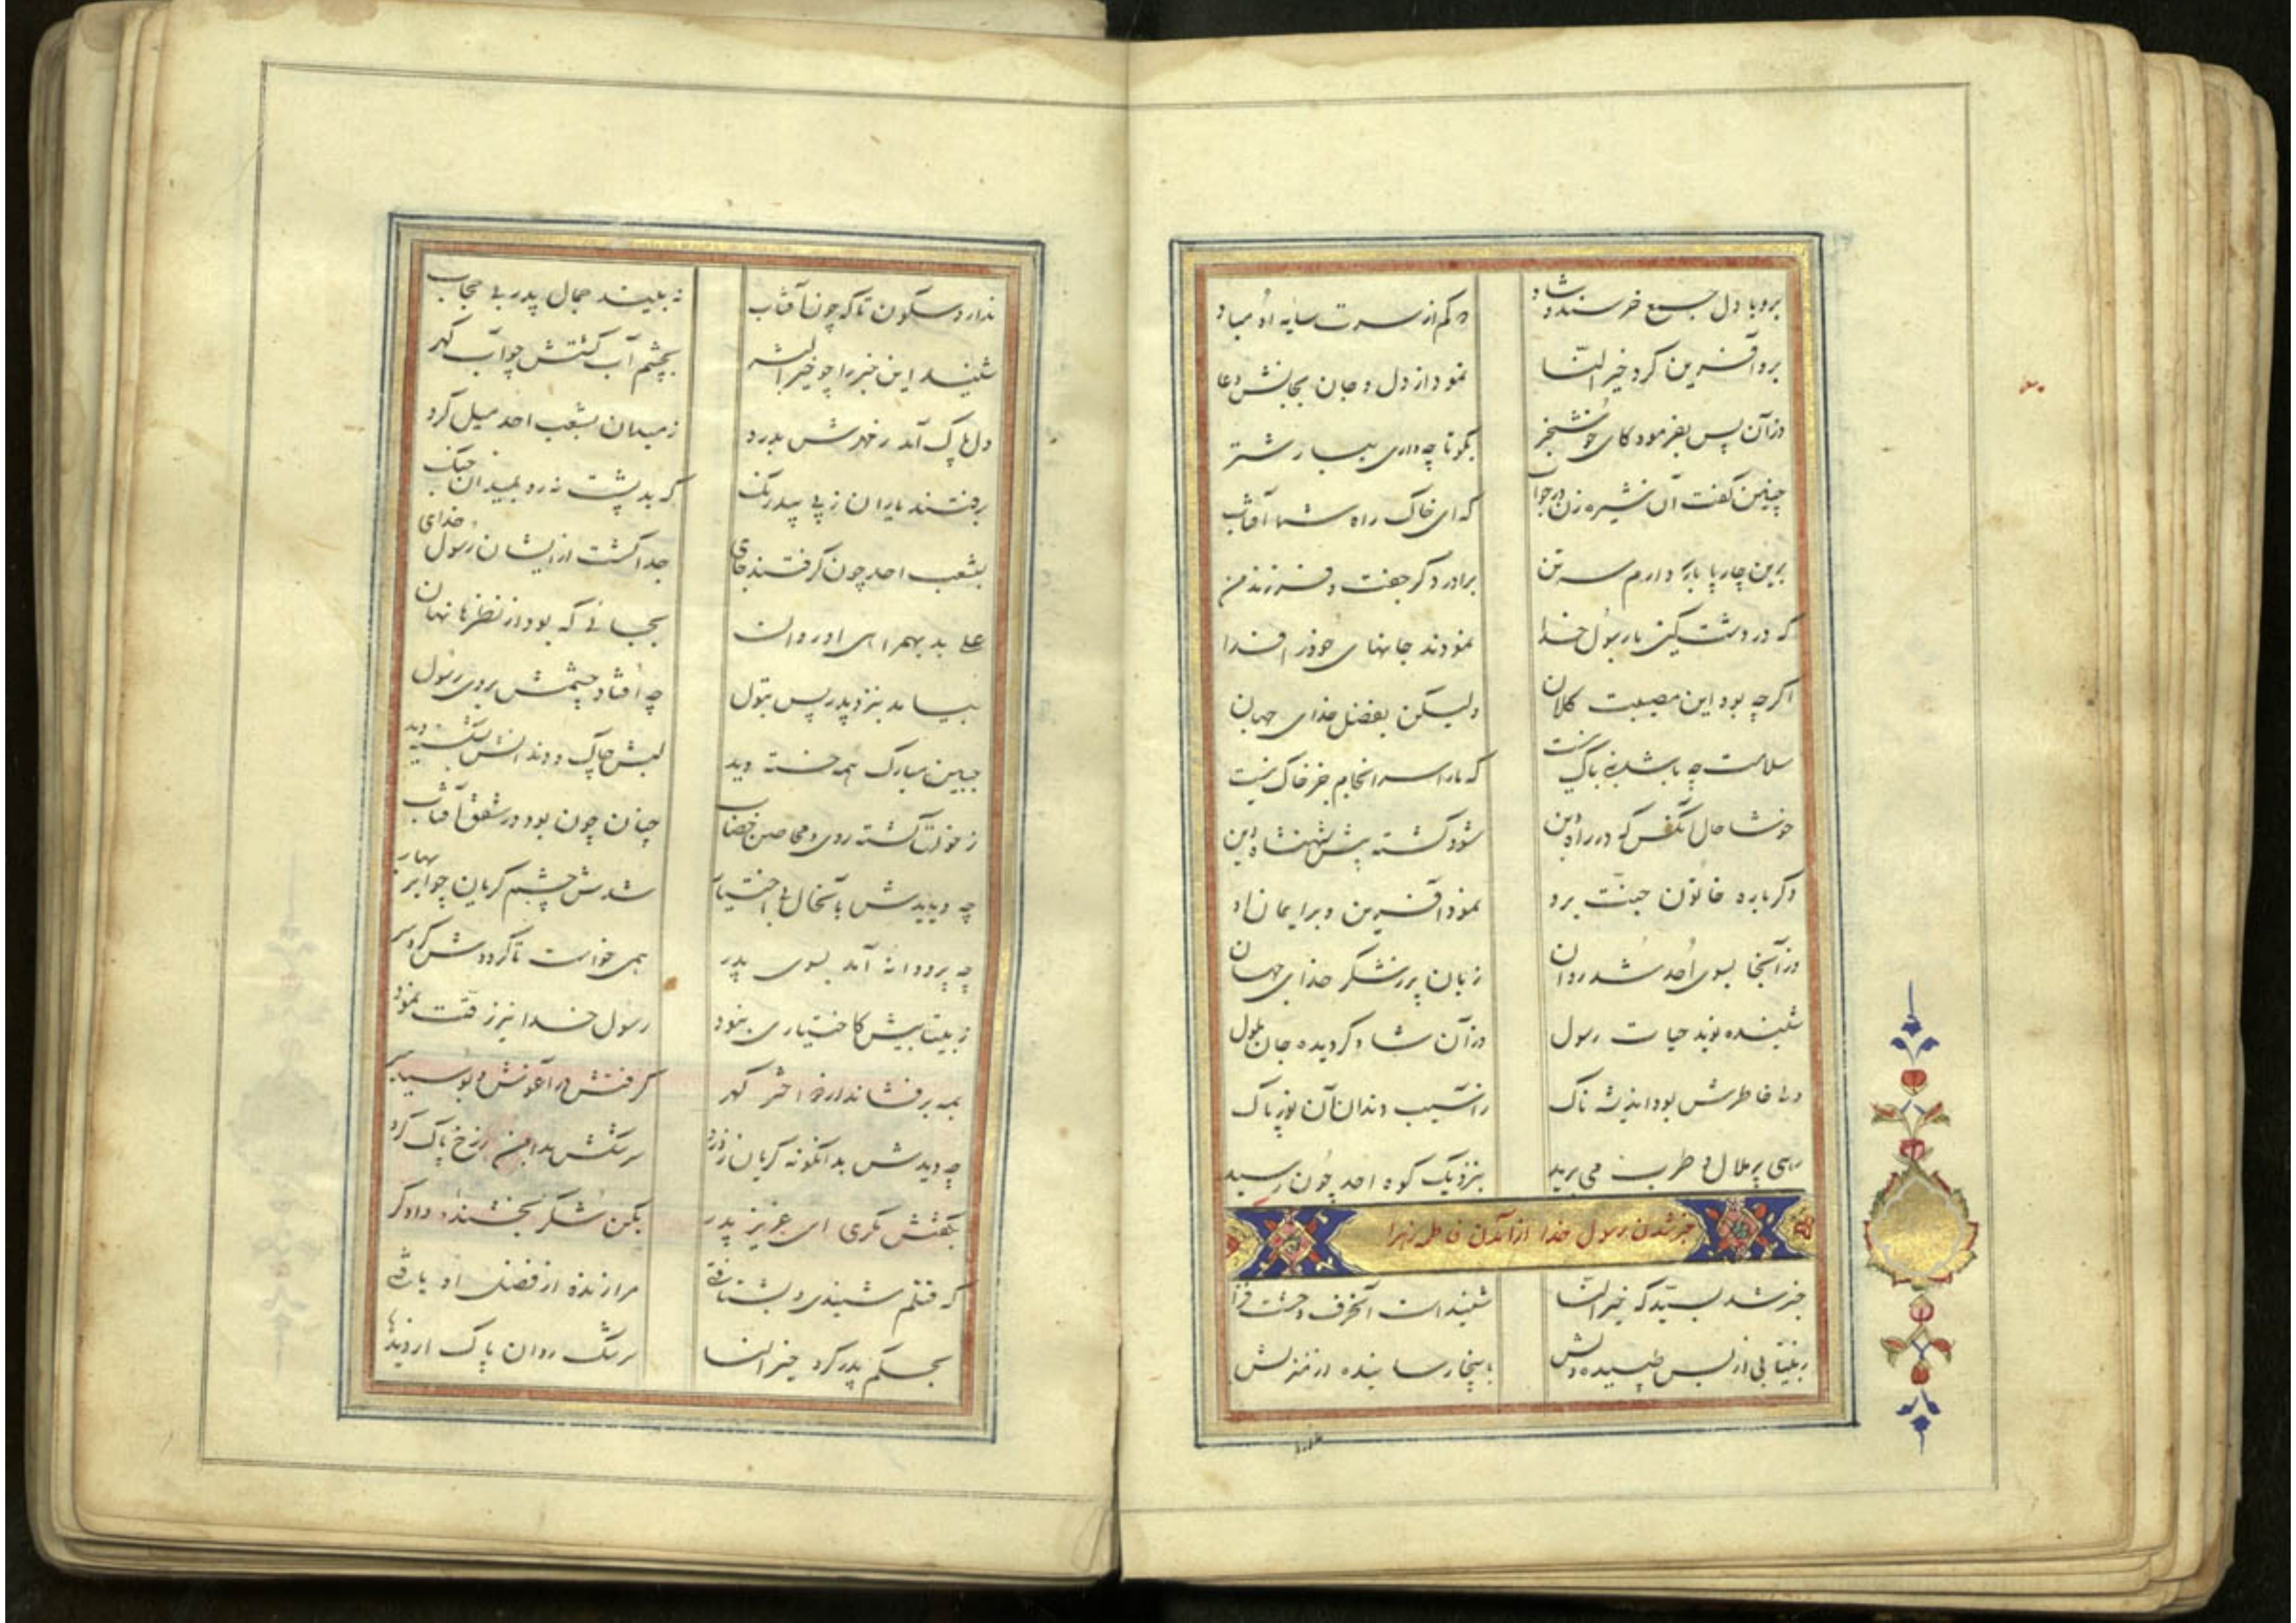 برو با دل جمع خرسند و شاد که کم از سرت سایه او مباد
برو آفرین کرد خیر النسا نمود از دل و جان بجانش دعا
وز آن پس بفرمود کای خوشخبر بگو تا چه داری ببار شتر
چنین گفت آن شیره زن در جواب که ای خاک راه شما آفتاب
برین چارپا باره دارم سه تن برادر دگر جفت و فرزند من
که در دشت کین با رسول خدا نمودند جانهای خود را فدا
اگرچه بود این مصیبت کلان ولیکن بفضل خدای جهان
سلامت چه باشد نبی باک نیست که ما را سرانجام جز خاک نیست
خوشا حال آنکس که در راه دین شود کشته پیش شهنشاه دین
دگرباره خاتون جنت برو نمود آفرین و بر ایمان او
وز آنجا بسوی احد شد روان زبان پر ز شکر خدای جهان
شنیده نوید حیات رسول وز آن شاد گردیده جان بتول
ولی خاطرش بود اندیشه ناک ز آسیب دندان آن نور پاک
رهی پر ملال و طرب می برید بنزدیک کوه احد چون رسید
خبر شدن رسول خدا از آمدن فاطمه زهرا
خبر شد بسید که خیر النسا شنیداست آنحرف وحشت فزا
ز بیتابی از بس طپیده دلش باینجا رسانیده از منزلش
ندارد سکون تا که چون آفتاب نه بیند جمال پدر بی حجاب
شنید این خبر را چو خیر البشر بچشم آب گشتش چو آب گهر
دل پاک آمد ز مهرش بدرد ز میدان بشعب احد میل کرد
برفتند یاران ز پی بیدرنگ که بد پشت نه رو بمیدان جنگ
بشعب احد چون گرفتند جای جدا گشت از ایشان رسول خدای
علی بد بهمراهی او روان بجائی که بود از نظرها نهان
بیامد بنزد پدر پس بتول چه افتاد چشمش بروی رسول
جبین مبارک همه خسته دید لبش چاک و دندانش بشکسته دید
ز خونآب گشته روی و محاسن خضاب چنان چون بود در شفق آفتاب
چه دیدش بآنحال بی اختیار شدش چشم گریان چو ابر بهار
چه پروانه آمد بسوی پدر همی خواست تا گرددش گرد سر
ز بیتابیش کاختیاری نبود رسول خدا نیز رقت نمود
بمه برفشاند از مژه اختر گهر گرفتش در آغوش و بوسید سر
چه دیدش بدانگونه گریان ز درد سرشکش بدامن ز رخ پاک کرد
بگفتش مگری ای عزیز پدر بکن شکر بخشنده دادگر
که قتلم شنیدی و بشتافتی مرا زنده از فضل او یافتی
بحکم پدر کرد خیر النسا سرشک روان پاک از دیدها